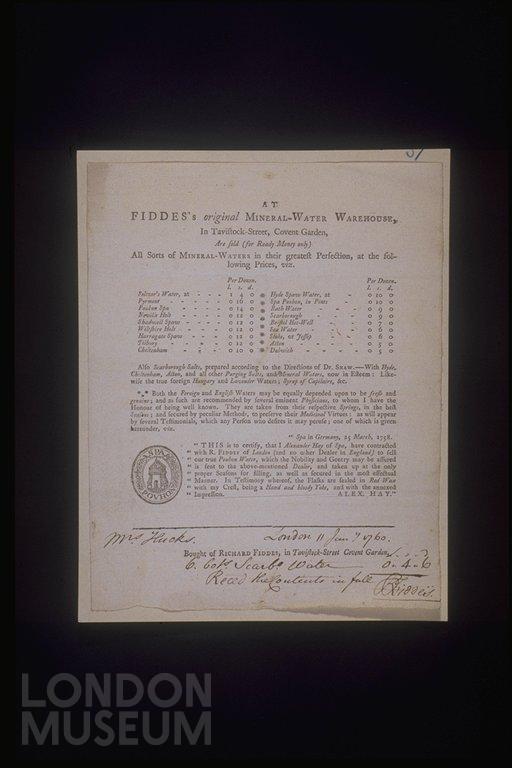 AT
FIDDES's original MINERAL-WATER WAREHOUSE,
In Taviſtock-Street, Covent Garden,
Are ſold (for Ready Money only)
All Sorts of MINERAL-WATERS in their greateſt Perfection, at the fol-
lowing Prices, viz.
Per Dozen. Per Dozen.
l. s. d. l. s. d.
Seltzer's Water, at - 1 4 0 Hyde Spaw Water, at - 0 10 0
Pyrmont - 0 16 0 Spa Pouhon, in Pints - 0 10 0
Pouhon Spa - 0 14 0 Bath Water - 0 9 0
Nevill Holt - 0 12 0 Scarborough - 0 9 0
Shadwell Spaw - 0 12 0 Briſtol Hot-Well - 0 7 0
Wiltſhire Holt - 0 12 0 Sea Water - 0 6 0
Harrogate Spaw - 0 12 0 Stoke, or Jeſſop - 0 6 0
Tilbury - 0 12 0 Acton - 0 5 0
Cheltenham - 0 10 0 Dulwich - 0 5 0
Alſo Scarborough Salts, prepared according to the Directions of Dr. SHAW.—With Hyde,
Cheltenham, Acton, and all other Purging Salts, and Mineral Waters, now in Eſteem: Like-
wiſe the true foreign Hungary and Lavender Waters; Syrup of Capilaire, &c.
*⁎* Both the Foreign and Engliſh Waters may be equally depended upon to be freſh and
genuine; and as ſuch are recommended by ſeveral eminent Phyſicians, to whom I have the
Honour of being well known. They are taken from their reſpective Springs, in the beſt
Seaſons; and ſecured by peculiar Methods, to preſerve their Medicinal Virtues: as will appear
by ſeveral Teſtimonials, which any Perſon who deſires it may peruſe; one of which is given
hereunder, viz.
" Spa in Germany, 25 March, 1758.
" THIS is to certify, that I Alexander Hay of Spa, have contracted
" with R. FIDDES of London (and no other Dealer in England) to ſell
" our true Pouhon Water, which the Nobility and Gentry may be aſſured
" is ſent to the above-mentioned Dealer, and taken up at the only
" proper Seaſons for filling, as well as ſecured in the moſt effectual
" Manner. In Teſtimony whereof, the Flaſks are ſealed in Red Wax
" with my Creſt, being a Hand and bloody Yoke, and with the annexed
" Impreſſion. ALEX. HAY."
SPA
POVHON
Mrs Hucks. London 11 Jany 1760.
Bought of RICHARD FIDDES, in Taviſtock-Street Covent Garden,
6 Botts Scarbo Water 0..4..6
Reced the Contents in full
R Fiddes
LONDON
MUSEUM